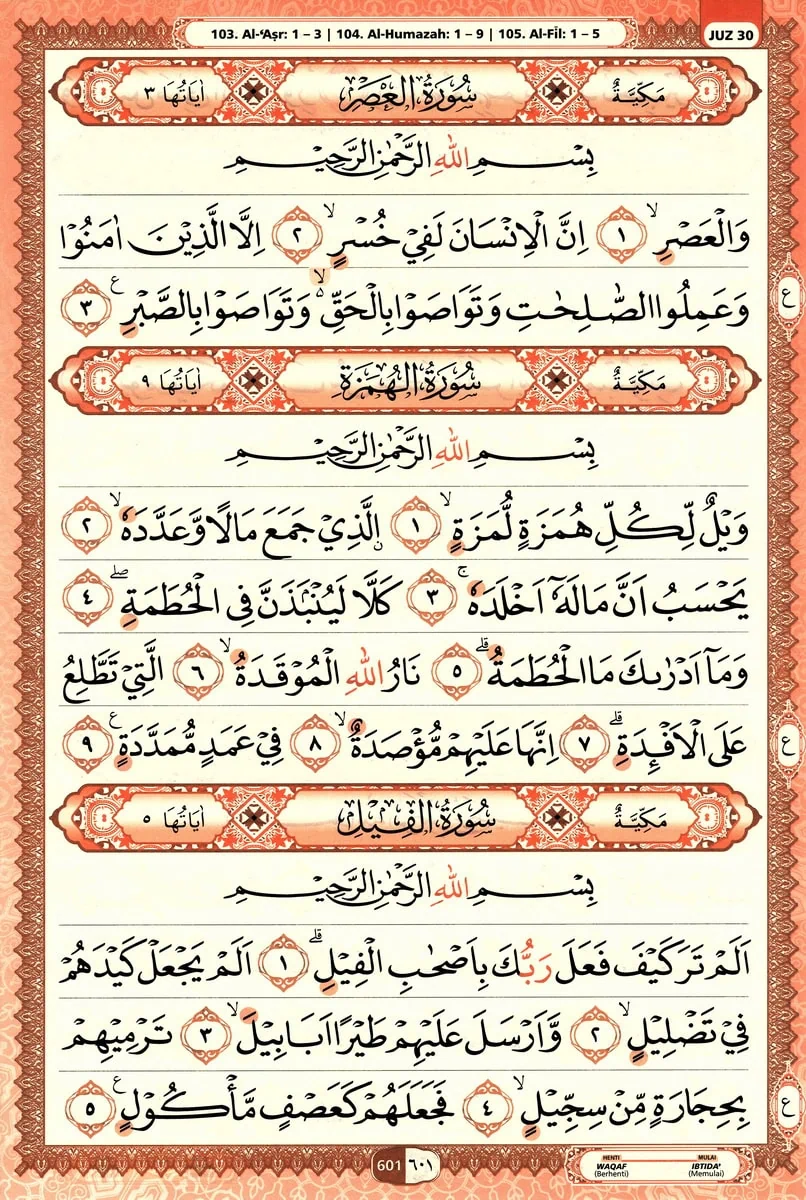 103. Al-‘Aṣr: 1 – 3 | 104. Al-Humazah: 1 – 9 | 105. Al-Fīl: 1 – 5
JUZ 30
مَكِّيَّةٌ سُوْرَةُ الْعَصْرِ اٰيَاتُهَا ٣
بِسْمِ اللّٰهِ الرَّحْمٰنِ الرَّحِيْمِ
وَالْعَصْرِۙ ١ اِنَّ الْاِنْسَانَ لَفِيْ خُسْرٍۙ ٢ اِلَّا الَّذِيْنَ اٰمَنُوْا
وَعَمِلُوا الصّٰلِحٰتِ وَتَوَاصَوْا بِالْحَقِّ ەۙ وَتَوَاصَوْا بِالصَّبْرِ ࣖ ٣
ع
مَكِّيَّةٌ سُوْرَةُ الْهُمَزَةِ اٰيَاتُهَا ٩
بِسْمِ اللّٰهِ الرَّحْمٰنِ الرَّحِيْمِ
وَيْلٌ لِّكُلِّ هُمَزَةٍ لُّمَزَةٍۙ ١ ۨالَّذِيْ جَمَعَ مَالًا وَّعَدَّدَهٗۙ ٢
يَحْسَبُ اَنَّ مَالَهٗٓ اَخْلَدَهٗۚ ٣ كَلَّا لَيُنْۢبَذَنَّ فِى الْحُطَمَةِۖ ٤
وَمَآ اَدْرٰىكَ مَا الْحُطَمَةُۗ ٥ نَارُ اللّٰهِ الْمُوْقَدَةُۙ ٦ الَّتِيْ تَطَّلِعُ
عَلَى الْاَفْـِٕدَةِۗ ٧ اِنَّهَا عَلَيْهِمْ مُّؤْصَدَةٌۙ ٨ فِيْ عَمَدٍ مُّمَدَّدَةٍ ࣖ ٩
ع
مَكِّيَّةٌ سُوْرَةُ الْفِيْلِ اٰيَاتُهَا ٥
بِسْمِ اللّٰهِ الرَّحْمٰنِ الرَّحِيْمِ
اَلَمْ تَرَ كَيْفَ فَعَلَ رَبُّكَ بِاَصْحٰبِ الْفِيْلِۗ ١ اَلَمْ يَجْعَلْ كَيْدَهُمْ
فِيْ تَضْلِيْلٍۙ ٢ وَّاَرْسَلَ عَلَيْهِمْ طَيْرًا اَبَابِيْلَۙ ٣ تَرْمِيْهِمْ
بِحِجَارَةٍ مِّنْ سِجِّيْلٍۙ ٤ فَجَعَلَهُمْ كَعَصْفٍ مَّأْكُوْلٍ ࣖ ٥
ع
601 ٦٠١
HENTI WAQAF (Berhenti)
MULAI IBTIDA’ (Memulai)